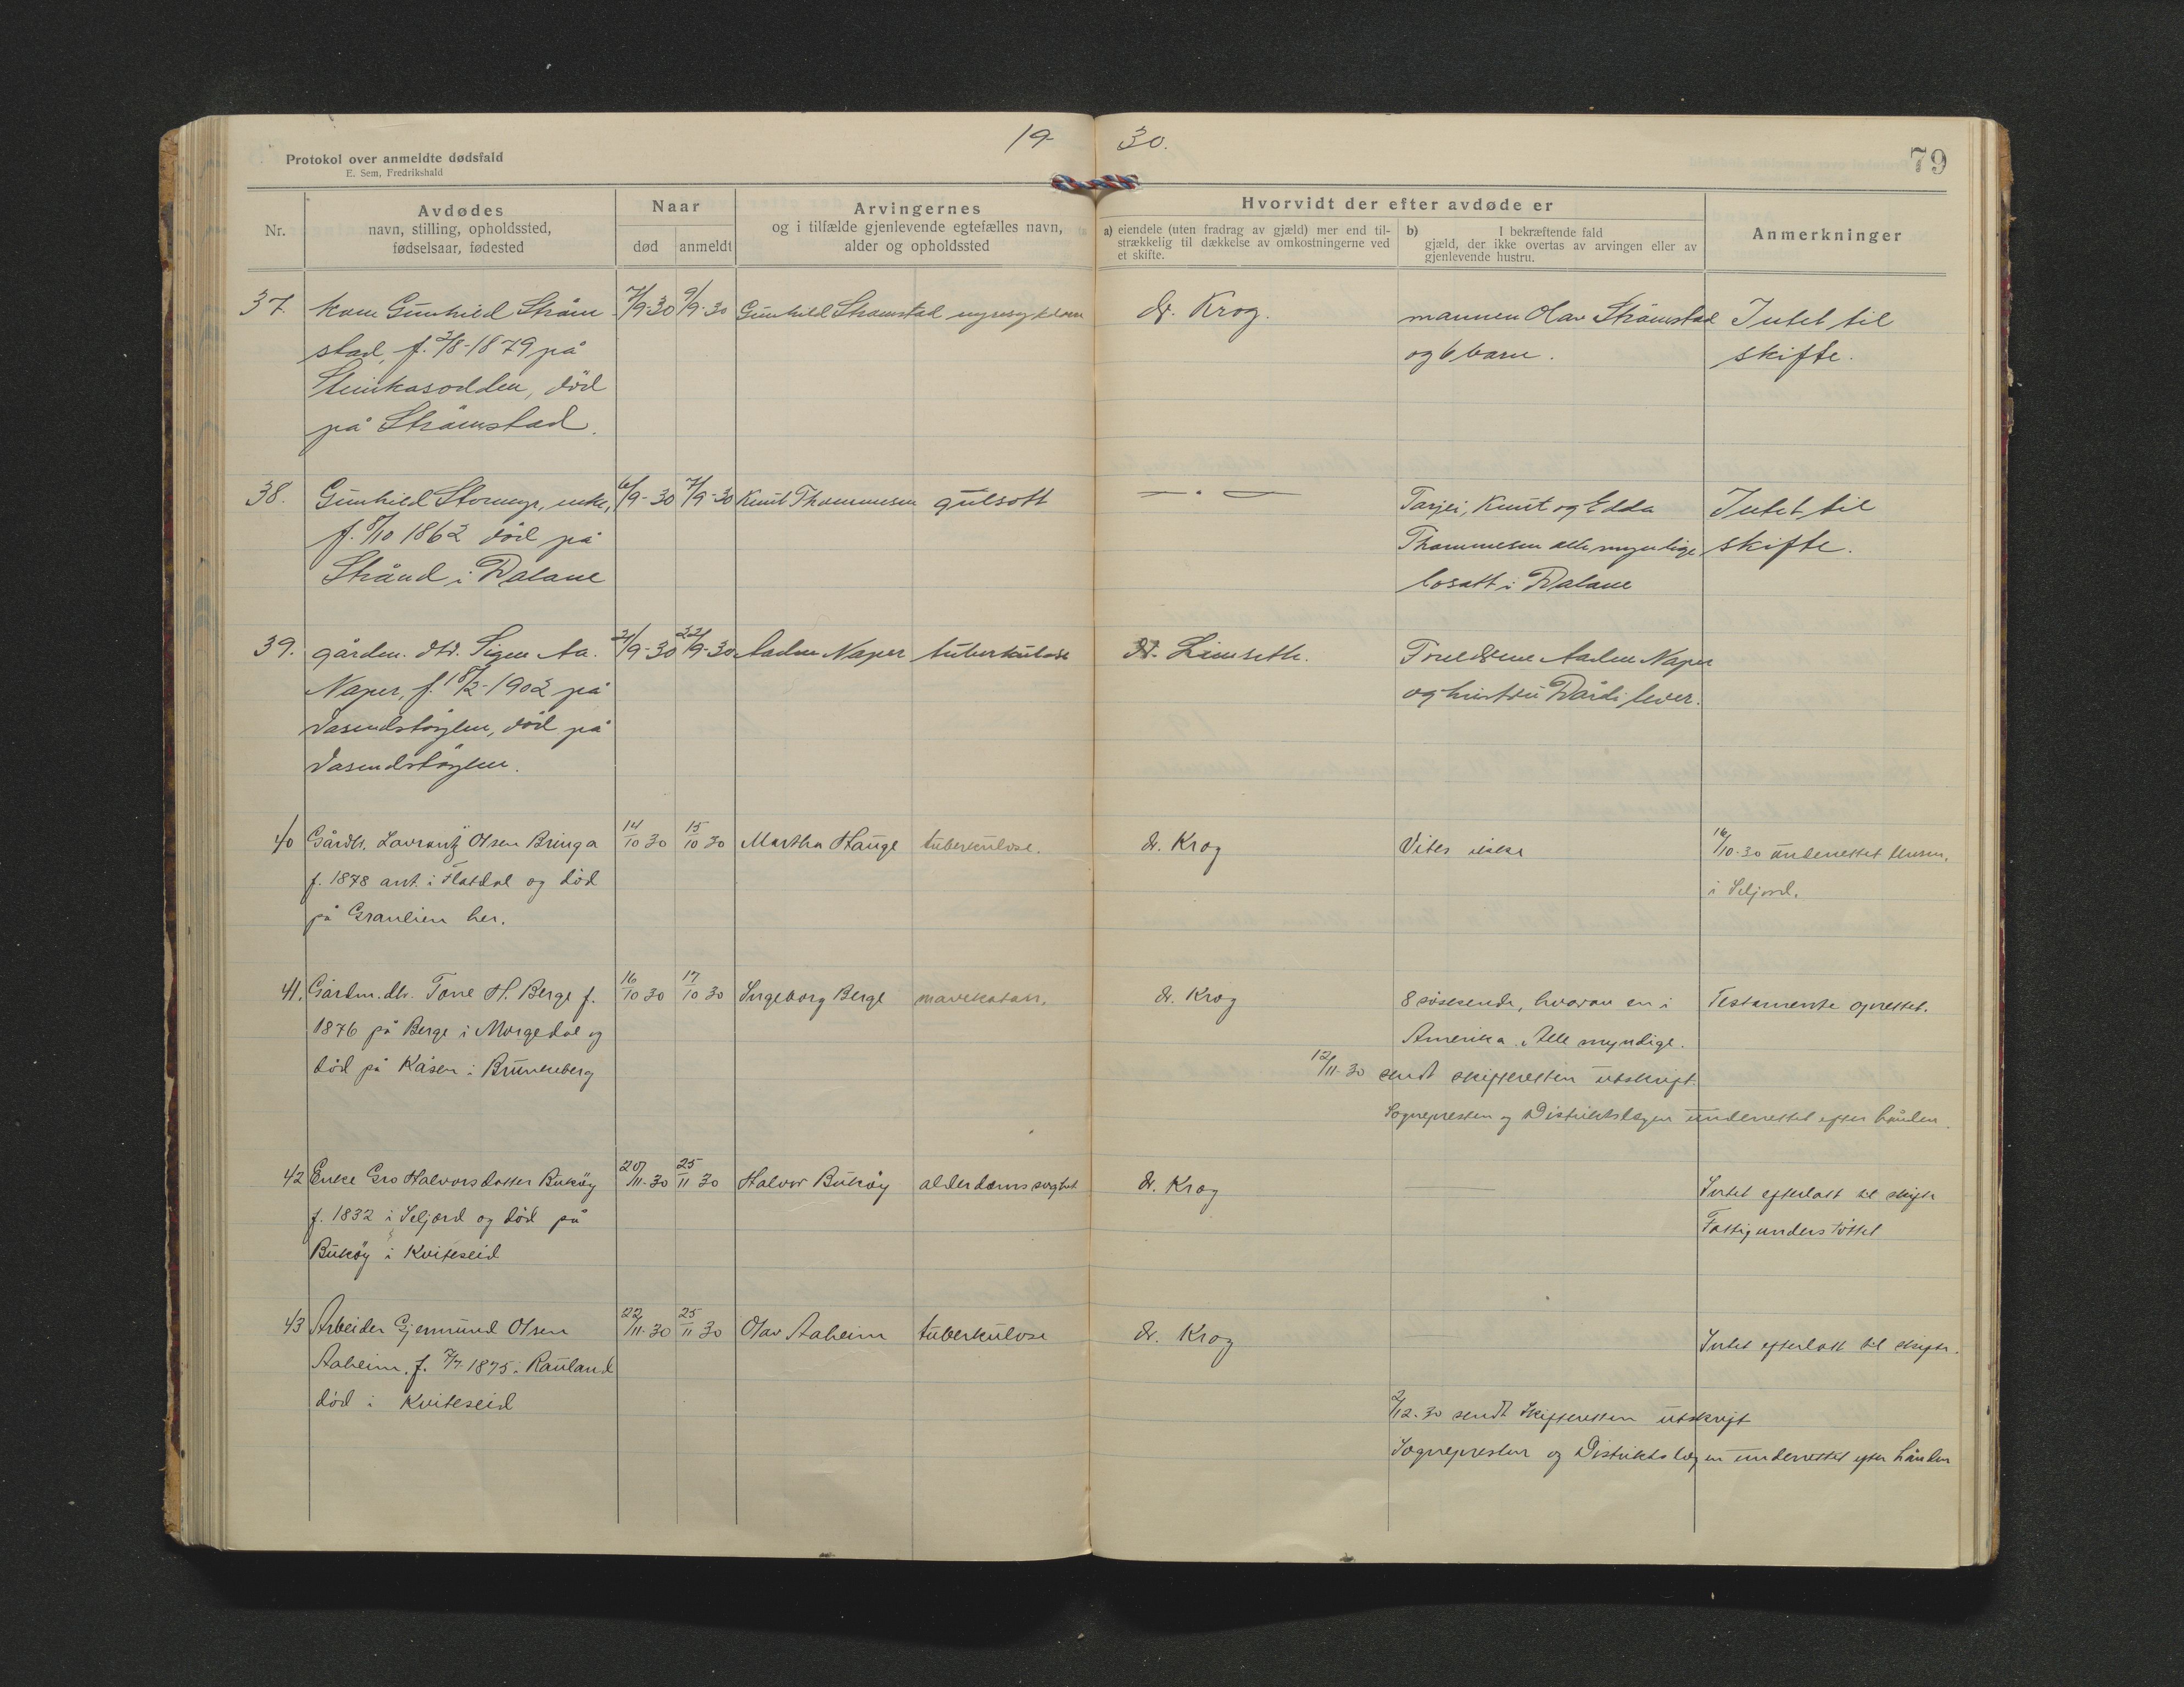 19 30.
Protokol over anmeldte dødsfald
E. Sem, Fredrikshald
79
Nr.
Avdødes
navn, stilling, opholdssted,
fødselsaar, fødested
Naar
død
anmeldt
Arvingernes
og i tilfælde gjenlevende egtefælles navn,
alder og opholdssted
Hvorvidt der efter avdøde er
a) eiendele (uten fradrag av gjæld) mer end til-
strækkelig til dækkelse av omkostningerne ved
et skifte.
b) I bekræftende fald
gjæld, der ikke overtas av arvingen eller av
gjenlevende hustru.
Anmerkninger
37. kone Gunhild Stråm 7/9-30 9/9-30 Gunhild Stråmstad nyresykdom dr. Krog. mannen Olav Stråmstad Intet til
stad, f. 3/8-1879 på og 6 barn. skifte.
Steinkasodden, död
på Stråmstad.
38. Gunhild Stormyr, enke, 6/9-30 7/9-30 Knut Thommesen gulsott — " — Tarjei, Knut og Edda Intet til
f. 8/10 1862 död på Thommesen alle myndige skifte.
Strånd i Dalane bosatt i Dalane
39. gårdm. dtr. Signe Aa. 21/9-30 22/9-30 Aadne Naper tuberkulose dr. Limseth. Foreldrene Aadne Naper
Naper, f. 18/2-1902 på og hustru Dårdi lever.
Vasendstöylen, död på
Vasendstöylen.
40 Gårdbr. Lavrantz Olsen Bringa 14/10 30 15/10 30 Martha Hauge tuberkulose. dr. Krog Vites ikke 16/10-30 underrettet lensm.
f. 1878 ant. i Flatdal og död i Seljord.
på Granlien her.
41. Gårdm. dtr. Tone H. Berge f. 16/10 30 17/10 30 Ingeborg Berge mavekatarr. dr. Krog 8 söskende, hvorav en i Testamente oprettet.
1876 på Berge i Morgedal og Amerika. Alle myndige.
död på Kåsen i Brunkeberg 12/11-30 sendt skifteretten utskrift.
Sognepresten og Distriktslegen underrettet efter hånden.
42 Enke Gro Halvorsdatter Buköy 20/11-30 25/11 30 Halvor Buköy alderdomssvaghet dr. Krog — Intet efterlatt til skifte
f. 1832 i Seljord og död på Fattigunderstöttet
Buköy i Kviteseid
43 Arbeider Gjermund Olsen 22/11-30 25/11 30 Olav Aaheim tuberkulose dr. Krog Intet efterlatt til skifte.
Aaheim. f. 7/7 1875 i Rauland
död i Kviteseid 2/12-30 sendt Skifteretten utskrift
Sognepresten og Distriktslegen underrettet efter hånden